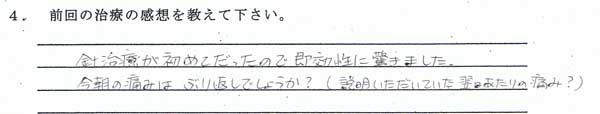 4. 前回の治療の感想を教えて下さい。
針治療が初めてだったので即効性に驚きました。
今朝の痛みは ぶり返しでしょうか？（説明いただいていた翌日あたりの痛み？）